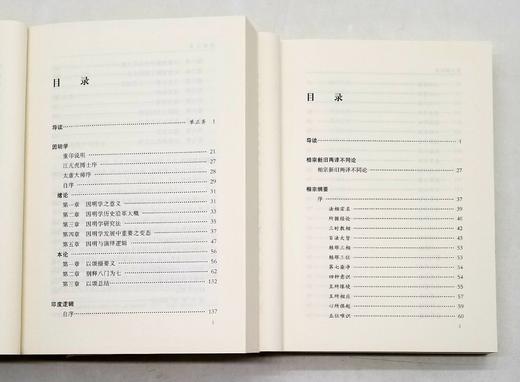 目 录
导读 1
因明学
重印说明 21
江亢虎博士序 22
太虚大师序 27
自序 29
绪论 36
第一章 因明学之意义 36
第二章 因明学历史沿革大概 38
第三章 因明学研究法 41
第四章 因明学发展中重要之变态 43
第五章 因明与演绎逻辑 47
本论 56
第一章 以颂摄要义 56
第二章 别释八门为七 62
第三章 以颂总结 132
印度逻辑
自序 137
1
目 录
导读 1
相宗新旧两译不同论
相宗新旧两译不同论 27
相宗纲要
序 37
法相定名 39
所据经论 40
三时教相 41
百法大旨 48
赖耶三相 50
赖耶三位 51
第七染净 52
四种意识 53
五所缘境
五所相应
心所俱起 59
五位唯识 60
1